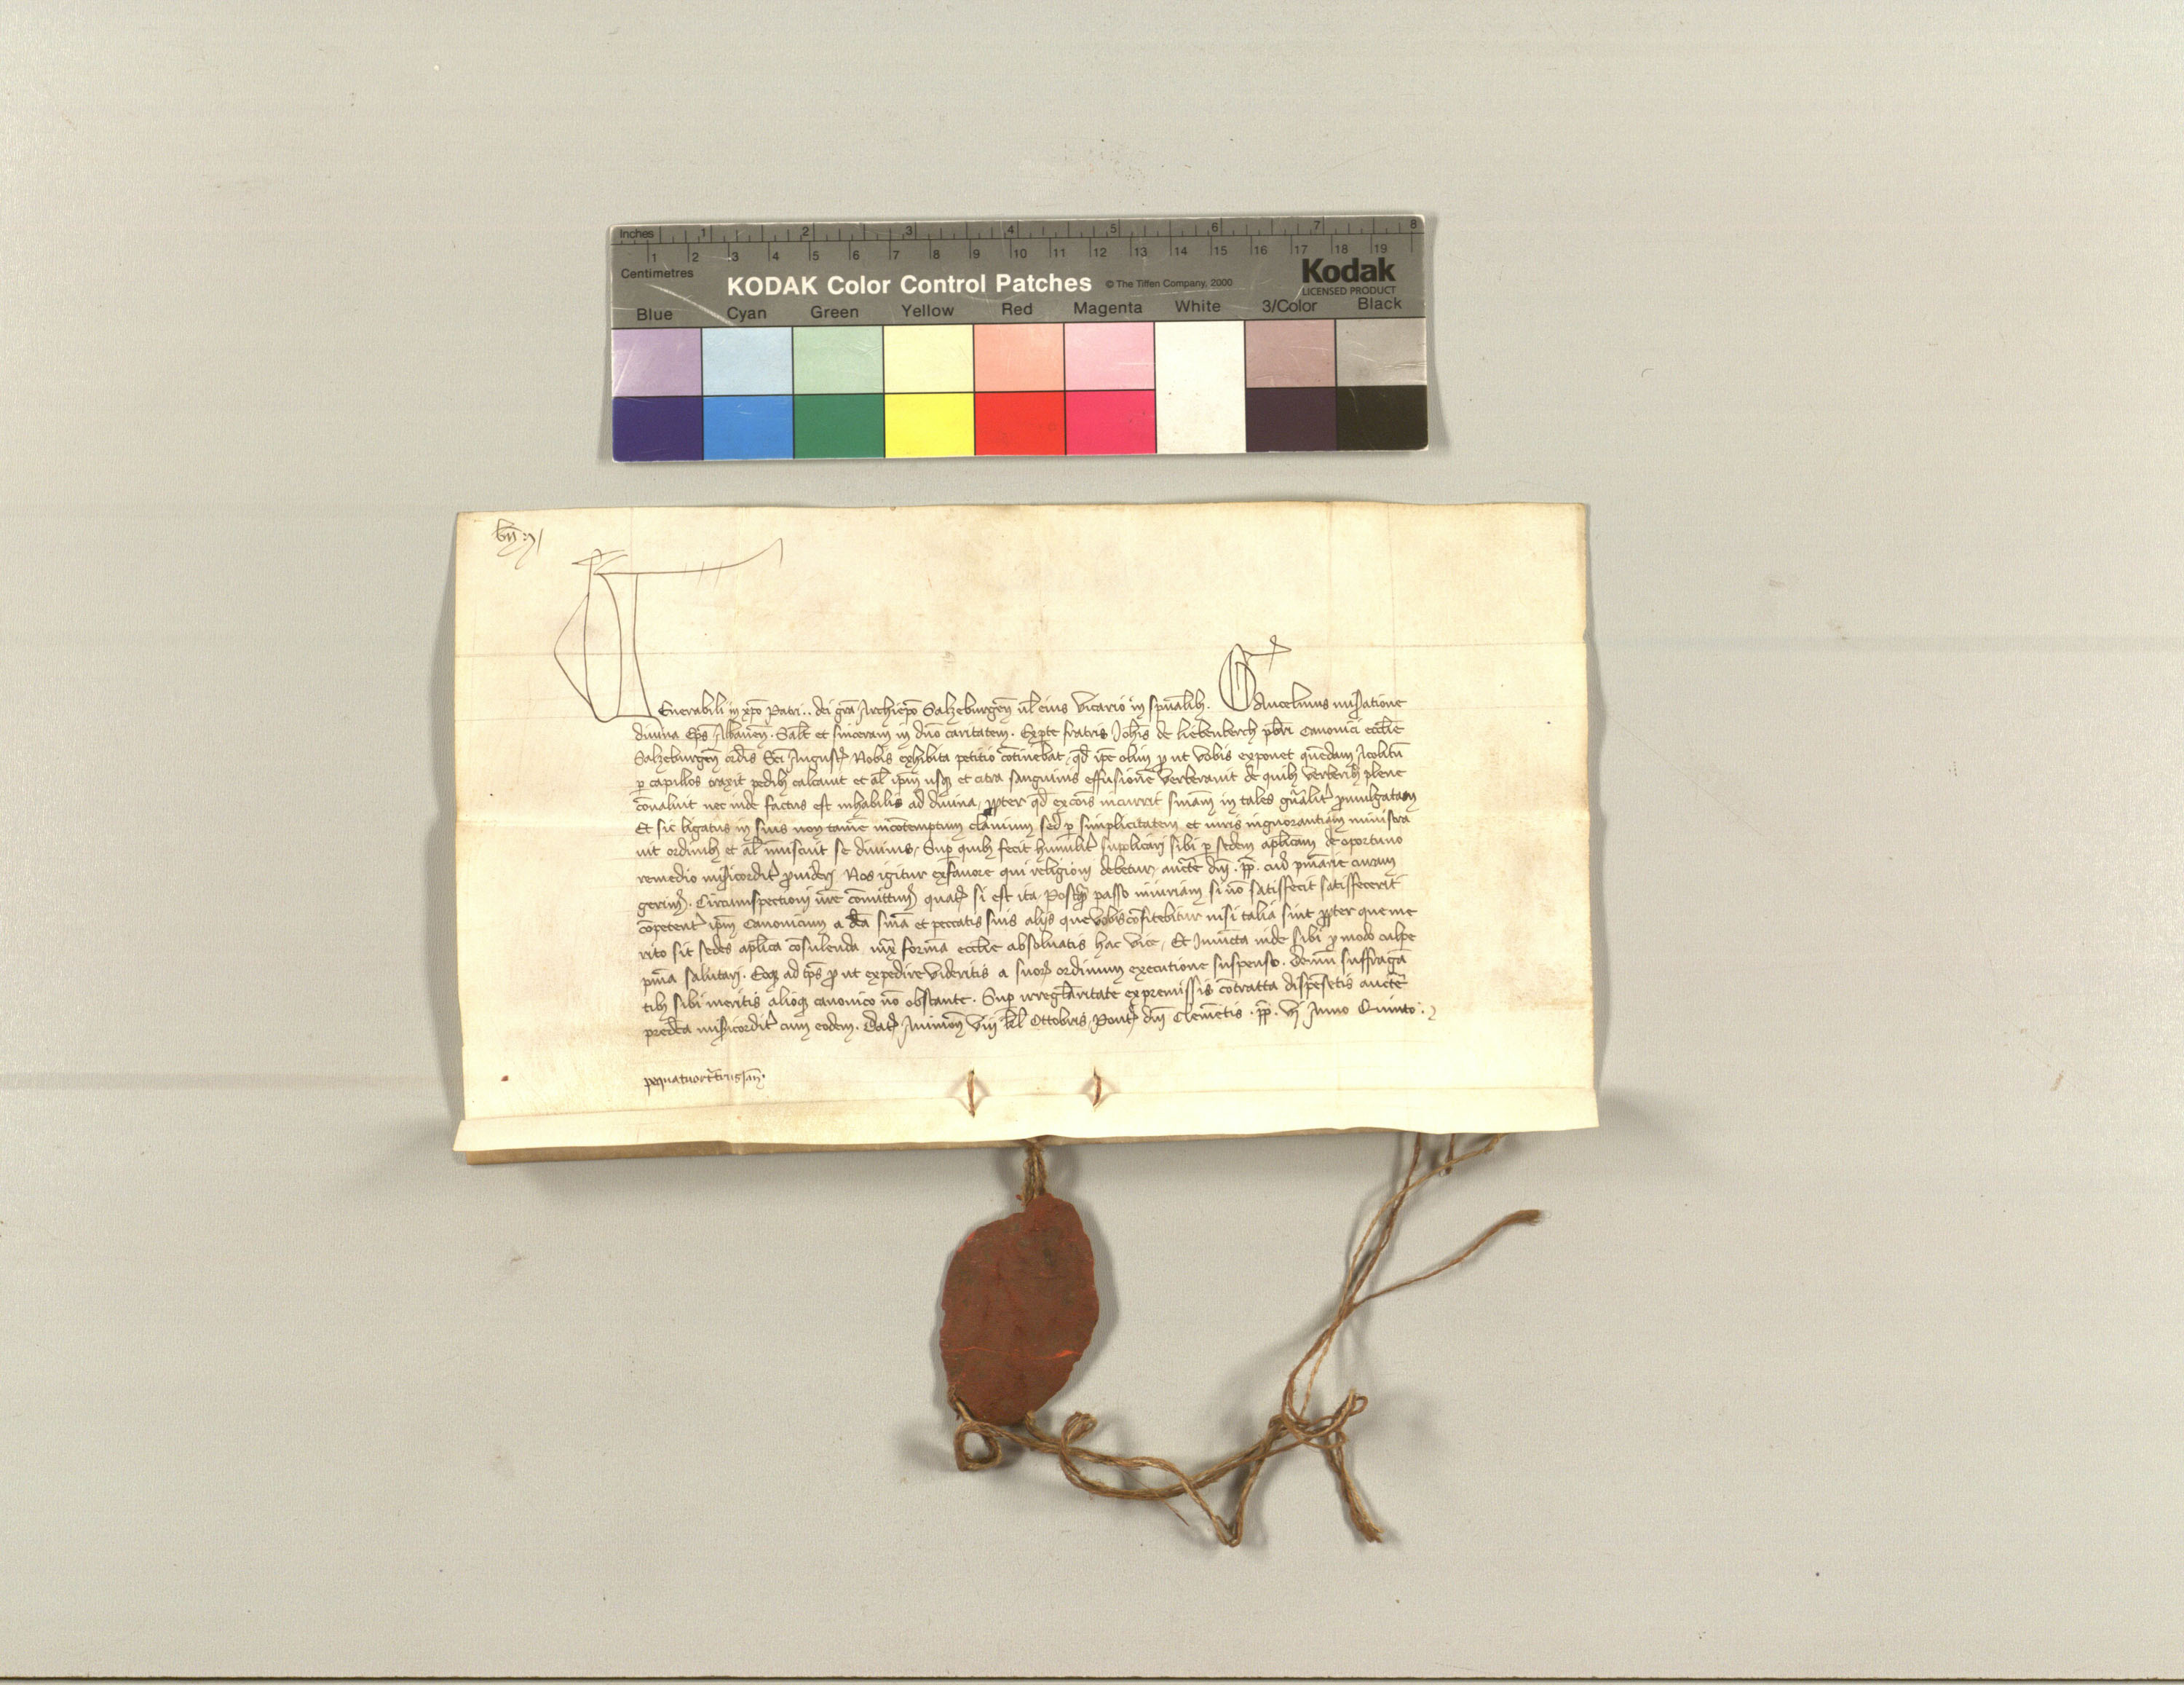 Inches 1 2 3 4 5 6 7 8
1 2 3 4 5 6 7 8 9 10 11 12 13 14 15 16 17 18 19
Centimetres
KODAK Color Control Patches © The Tiffen Company, 2000 Kodak
LICENSED PRODUCT
Blue Cyan Green Yellow Red Magenta White 3/Color Black
Venerabili in xp̄o Patri . . dei gr̄a Archiep̄o Salzeburgen̄ ul̄ eius vicario in spūalib₃. Gaucelmus mis̄atione
diuina Ep̄s Albanen̄. Salt̄ et sinceram in dn̄o caritatem. Ex p̄te fratris Joh̄is de Liebenberch pb̄ri Canonici ecclīe
Salzeburgen̄ ordīs Sc̄i Augusꝭ Nobis exhibita petitio cōtinebat, qd̄ ip̄e olim ꝓut vobis exponet quēdam Acolitū
ꝑ capillos traxit pedib₃ calcauit et al̄ ip̄m usq₃ et citra sanguinis effusionē verberauit de quib₃ verberib₃ plene
cōualuit nec inde factus est inhabilis ad diuina, ꝓpter qd̄ excōis incurrit sn̄iam in tales gn̄alit̄ ꝓmulgatam
Et sic ligatus in suis non tamē in cōtemptum clauium sed ꝑ simplicitatem et iuris ingnorantiam ministra
uit ordinib₃ et al̄ īmiscuit se diuinis, Suꝑ quib₃ fecit humilit̄ supplicari sibi ꝑ sedem aplīcam de oportuno
remedio mis̄icordit̄ ꝓuideri, Nos igitur ex fauore qui religioni debetur, auctē dn̄i . pp̄. cuiꝰ pn̄iarie curam
gerimꝰ. Circumspectioni vr̄e cōmittimꝰ quatꝭ si est ita, Postq̄ꝫ passo iniuriam si nō satisfecit satisfecerit
cōpetent̄ ip̄m Canonicum a dc̄a sn̄ia et peccatis suis alijs que vobis cōfitebitur nisi talia sint ꝓpter que me
rito sit sedes aplīca cōsulenda, iux̄ formā ecclīe absoluatis hac vice, Et Iniūcta inde sibi ꝓ modo culpe
pn̄ia salutari. Eoq₃ ad tp̄s ꝓut expedire videritis a suoꝝ ordinum executione suspenso. Demū suffragā
tib₃ sibi meritis alioq₃ canonico nō obstante. Suꝑ irregl̄aritate ex premissis cōtracta dispēsetis auctē
predc̄a mis̄icordit̄ cum eodem. Datꝭ Auinion̄ viij kl̄ Octobris, Pontꝭ dn̄i Clemētis . pp̄. vj Anno Quinto.